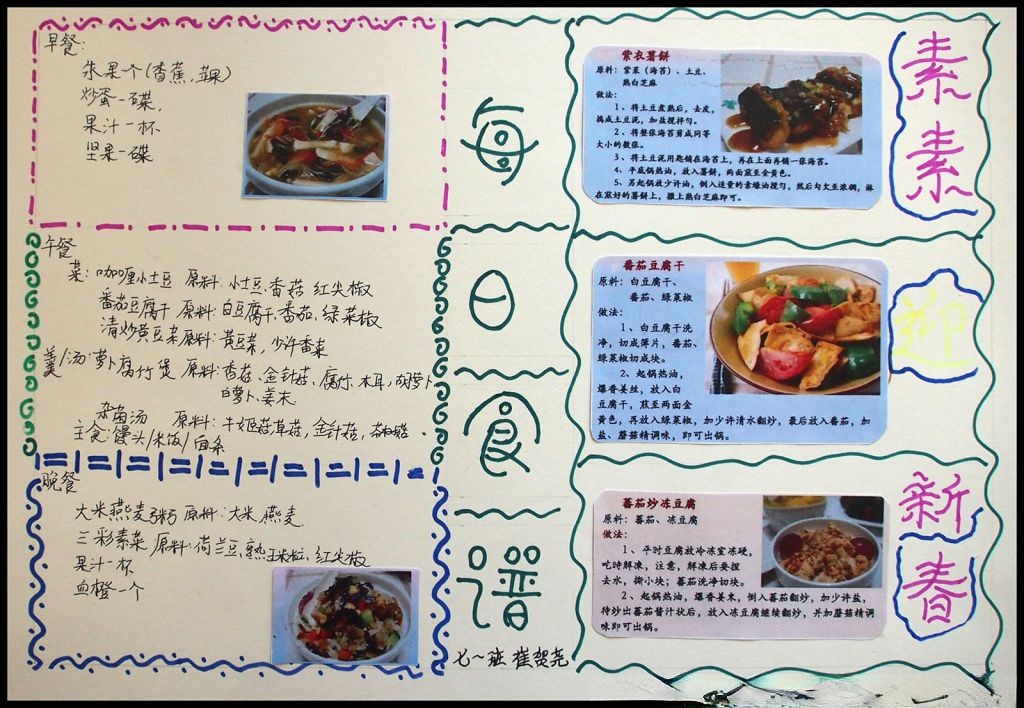 早餐:
水果一个(香蕉,苹果)
炒蛋一碟,
果汁一杯
坚果一碟
午餐
菜: 咖喱小土豆 原料: 小土豆、香菇 红尖椒
番茄豆腐干 原料: 白豆腐干、番茄, 绿菜椒
清炒黄豆芽原料: 黄豆芽, 少许香菜
羹/汤: 萝卜腐竹煲 原料: 香菇、金针菇、腐竹、木耳, 胡萝卜
白萝卜、姜末
杂菌汤 原料: 牛奶菇,草菇, 金针菇,
主食: 馒头/米饭/面条
晚餐
大米燕麦粥 原料: 大米 燕麦
三彩素菜 原料: 荷兰豆、熟玉米粒、红尖椒
果汁一杯
血橙一个
每日食谱
七一班 崔贺尧
紫衣薯餅
原料:紫菜(海苔)、土豆、
熟白芝麻
做法:
1、将土豆煮熟后,去皮,
捣成土豆泥,加盐搅拌匀。
2、将整张海苔剪成同等
大小的数张。
3、将土豆泥用匙铺在海苔上,再在上面再铺一张海苔。
4、平底锅热油,放入薯餅,两面煎至金黄色。
5、另起锅放少许油,倒入适量的素蠔油搅匀,然后勾欠至浓稠,淋
在煎好的薯餅上,撒上熟白芝麻即可。
番茄豆腐干
原料:白豆腐干、
番茄、绿菜椒
做法:
1、白豆腐干洗
净,切成薄片,番茄、
绿菜椒切成块。
2、起锅热油,
爆香姜丝,放入白
豆腐干,煎至两面金
黄色,再放入绿菜椒,加少许清水翻炒,最后放入番茄,加
盐、蘑菇精调味,即可出锅。
蕃茄炒冻豆腐
原料:蕃茄、冻豆腐
做法:
1、平时豆腐放冷冻室冻硬,
吃时解凍,注意,解凍后要捏
去水,撕小块;蕃茄洗净切块。
2、起锅热油,爆香姜末,倒入蕃茄翻炒,加少许盐,
待炒出蕃茄酱汁状后,放入冻豆腐继续翻炒,并加蘑菇精调
味即可出锅。
素素迎新春